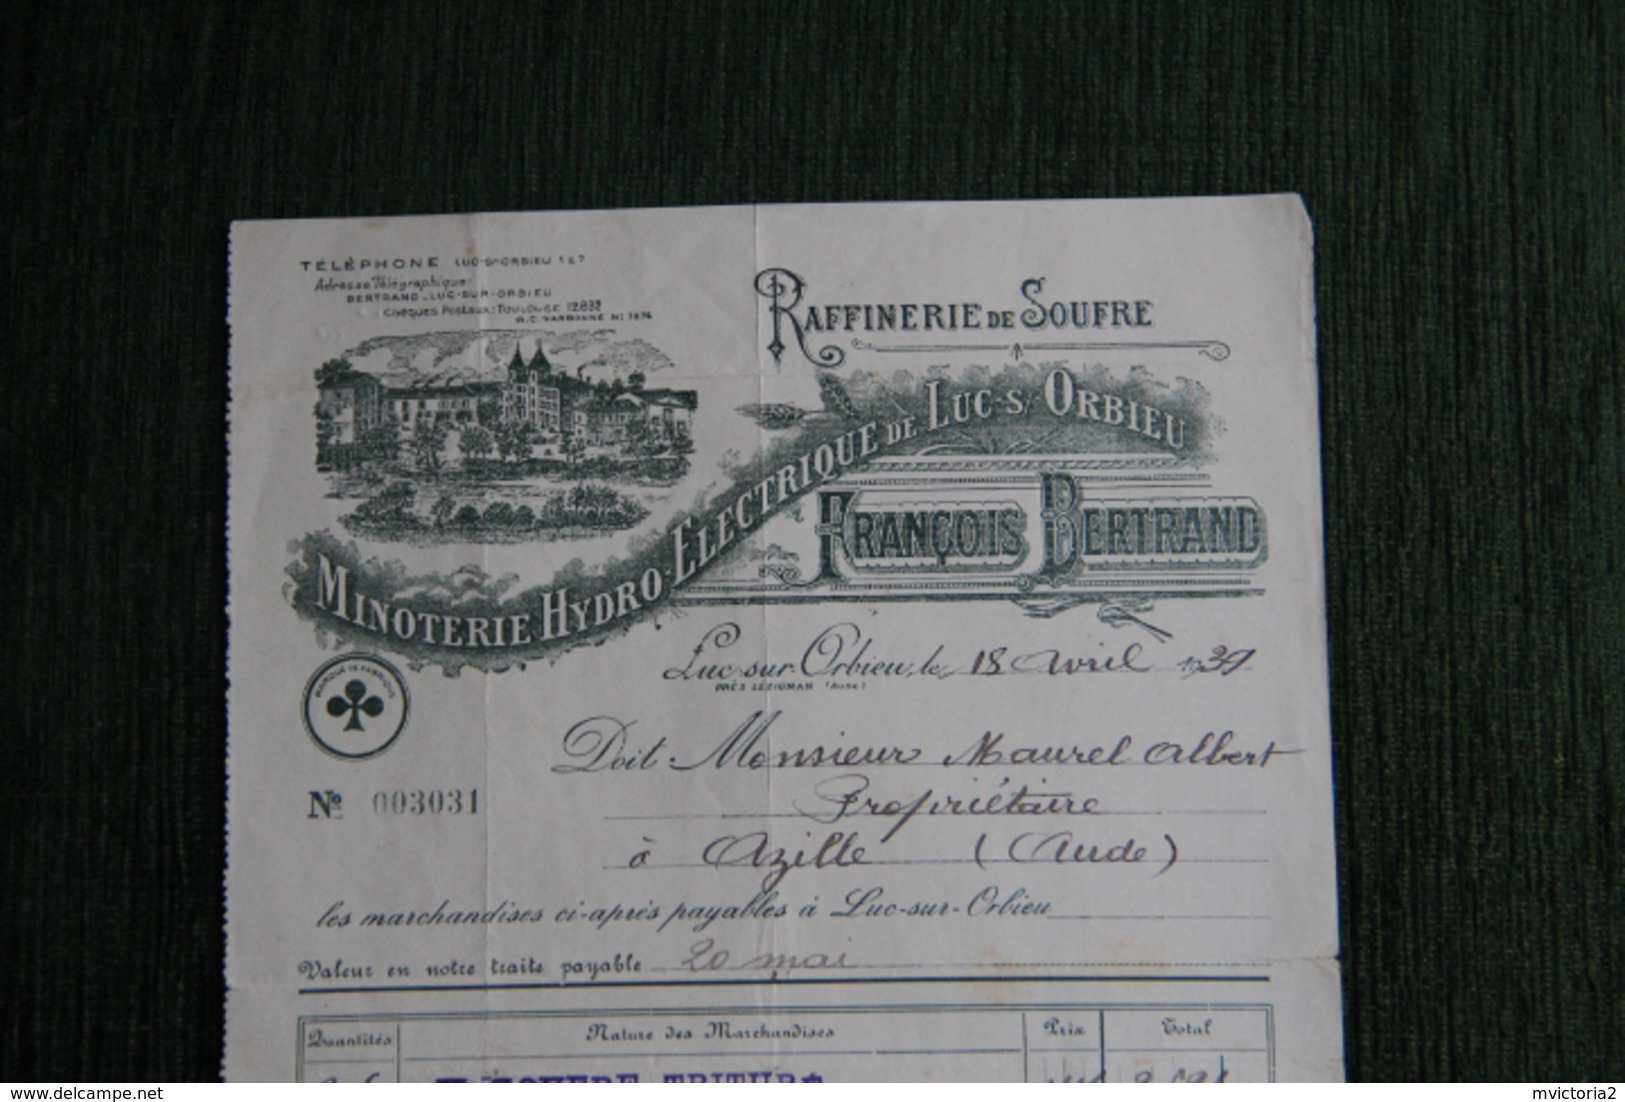 TÉLÉPHONE LUC-S/-ORBIEU 1 & 7
Adresse Télégraphique:
BERTRAND-LUC-SUR-ORBIEU
Chèques Postaux: TOULOUSE 12.832
R.C. NARBONNE No 1974
RAFFINERIE DE SOUFRE
MINOTERIE HYDRO-ELECTRIQUE DE LUC-S/-ORBIEU
FRANÇOIS BERTRAND
Luc-sur-Orbieu, le 18 Avril 1939
PRÈS LÉZIGNAN (Aude)
MARQUE DE FABRIQUE
Doit Monsieur Maurel Albert
No 003031
Propriétaire
à Azille (Aude)
les marchandises ci-après payables à Luc-sur-Orbieu
Valeur en notre traite payable 20 mai
Quantités Nature des Marchandises Prix Total
delcampe.net
mvictoria2